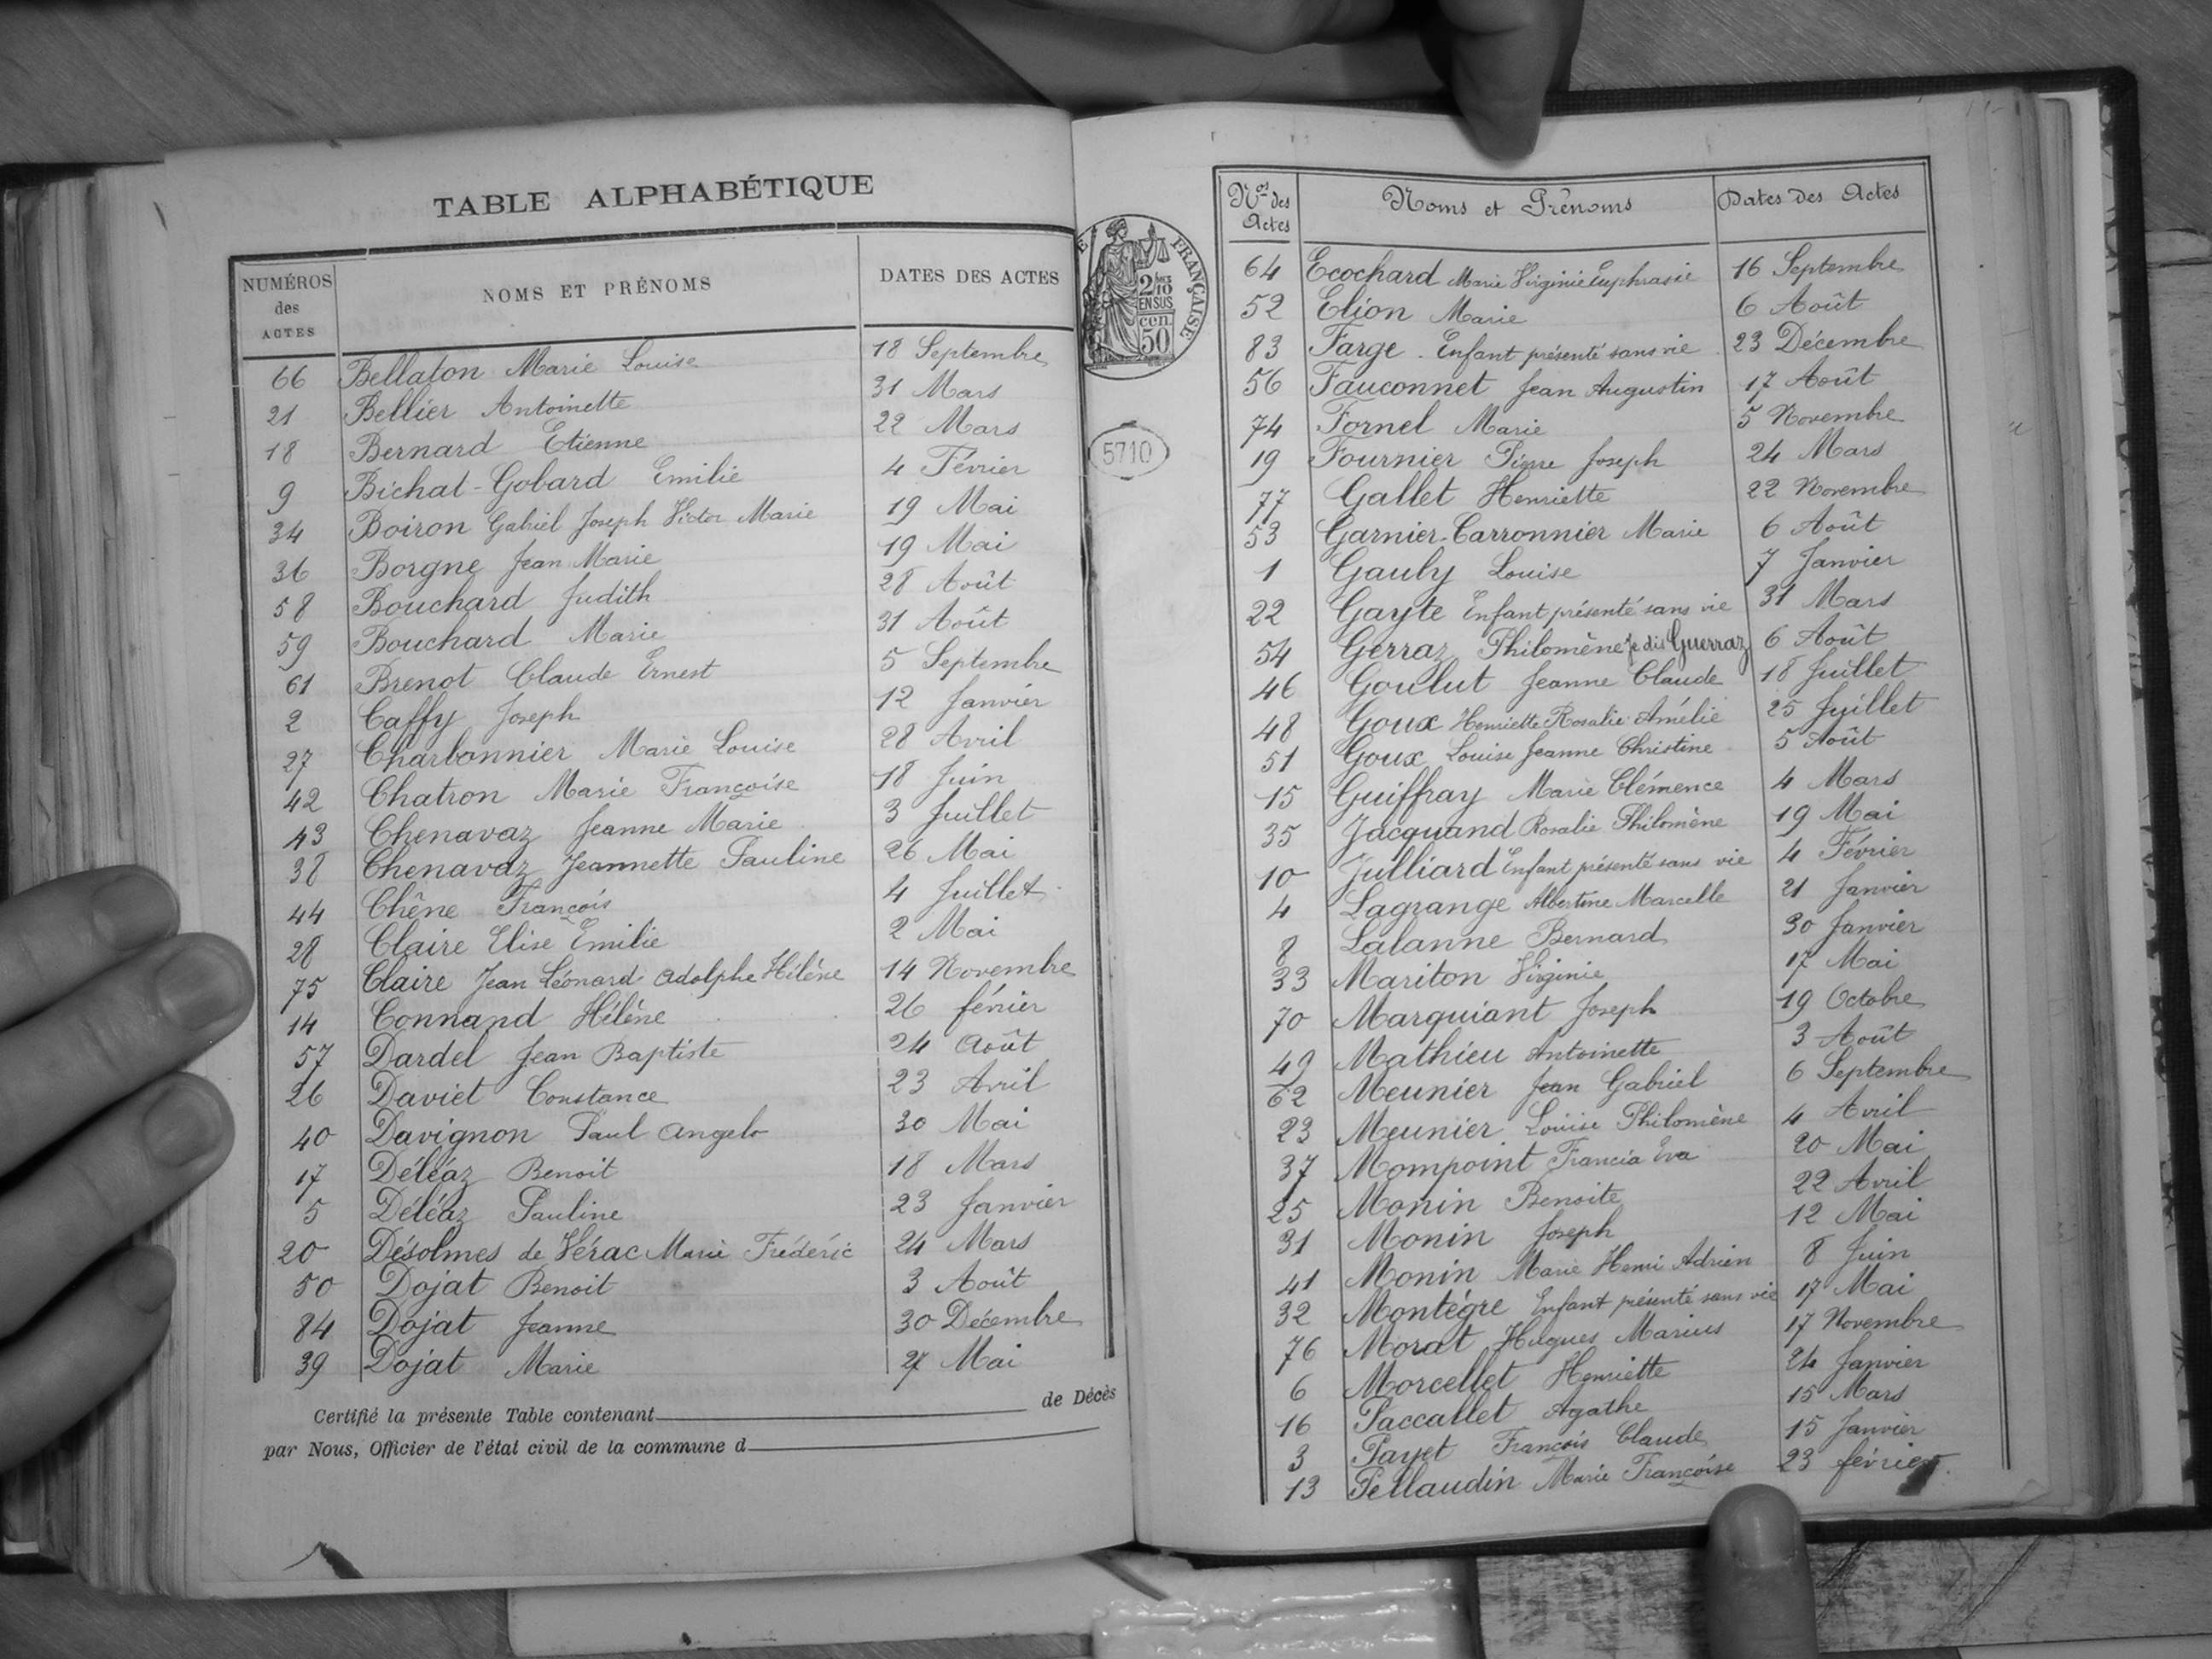 TABLE ALPHABÉTIQUE
NUMÉROS des ACTES NOMS ET PRÉNOMS DATES DES ACTES
66 Bellaton Marie Louise 18 Septembre
21 Bellier Antoinette 31 Mars
18 Bernard Etienne 22 Mars
9 Bichat-Gobard Emilie 4 Février
34 Boiron Gabriel Joseph Victor Marie 19 Mai
36 Borgne Jean Marie 19 Mai
58 Bouchard Judith 28 Août
59 Bouchard Marie 31 Août
61 Brenot Claude Ernest 5 Septembre
2 Caffy Joseph 12 Janvier
27 Charbonnier Marie Louise 28 Avril
42 Chatron Marie Françoise 18 Juin
43 Chenavaz Jeanne Marie 3 Juillet
38 Chenavaz Jeannette Pauline 26 Mai
44 Chêne François 4 Juillet
28 Claire Elise Emilie 2 Mai
75 Claire Jean Léonard Adolphe Hélène 14 Novembre
14 Connand Hélène 26 février
57 Dardel Jean Baptiste 24 Août
26 Daviet Constance 23 Avril
40 Davignon Paul Angelo 30 Mai
17 Déléaz Benoit 18 Mars
5 Déléaz Pauline 23 Janvier
20 Désolmes de Vérac Marie Frédéric 24 Mars
50 Dojat Benoit 3 Août
84 Dojat Jeanne 30 Décembre
39 Dojat Marie 27 Mai
Certifié la présente Table contenant de Décès
par Nous, Officier de l'état civil de la commune d
FRANÇAISE
2/10 EN SUS
cen
50
5710
Nos des Actes Noms et Prénoms Dates des Actes
64 Ecochard Marie Virginie Euphrasie 16 Septembre
52 Elion Marie 6 Août
83 Farge. Enfant présenté sans vie 23 Décembre
56 Fauconnet Jean Augustin 17 Août
74 Fornel Marie 5 Novembre
19 Fournier Pierre Joseph 24 Mars
77 Gallet Henriette 22 Novembre
53 Garnier-Carronnier Marie 6 Août
1 Gauly Louise 7 Janvier
22 Gayte Enfant présenté sans vie 31 Mars
54 Gerraz Philomène je dis Guerraz 6 Août
46 Goulut Jeanne Claude 18 Juillet
48 Goux Henriette Rosalie Amélie 25 Juillet
51 Goux Louise Jeanne Christine 5 Août
15 Guiffray Marie Clémence 4 Mars
35 Jacquand Rosalie Philomène 19 Mai
10 Julliard Enfant présenté sans vie 4 Février
4 Lagrange Albertine Marcelle 21 Janvier
8 Lalanne Bernard 30 Janvier
33 Mariton Virginie 17 Mai
70 Marquiant Joseph 19 Octobre
49 Mathieu Antoinette 3 Août
62 Meunier Jean Gabriel 6 Septembre
23 Meunier Louise Philomène 4 Avril
37 Mompoint Francia Eva 20 Mai
25 Monin Benoite 22 Avril
31 Monin Joseph 12 Mai
41 Monin Marie Henri Adrien 8 Juin
32 Montègre Enfant présenté sans vie 17 Mai
76 Morat Hugues Marius 17 Novembre
6 Morcellet Henriette 24 Janvier
16 Paccallet Agathe 15 Mars
3 Payet François Claude 15 Janvier
13 Pellaudin Marie Françoise 23 février